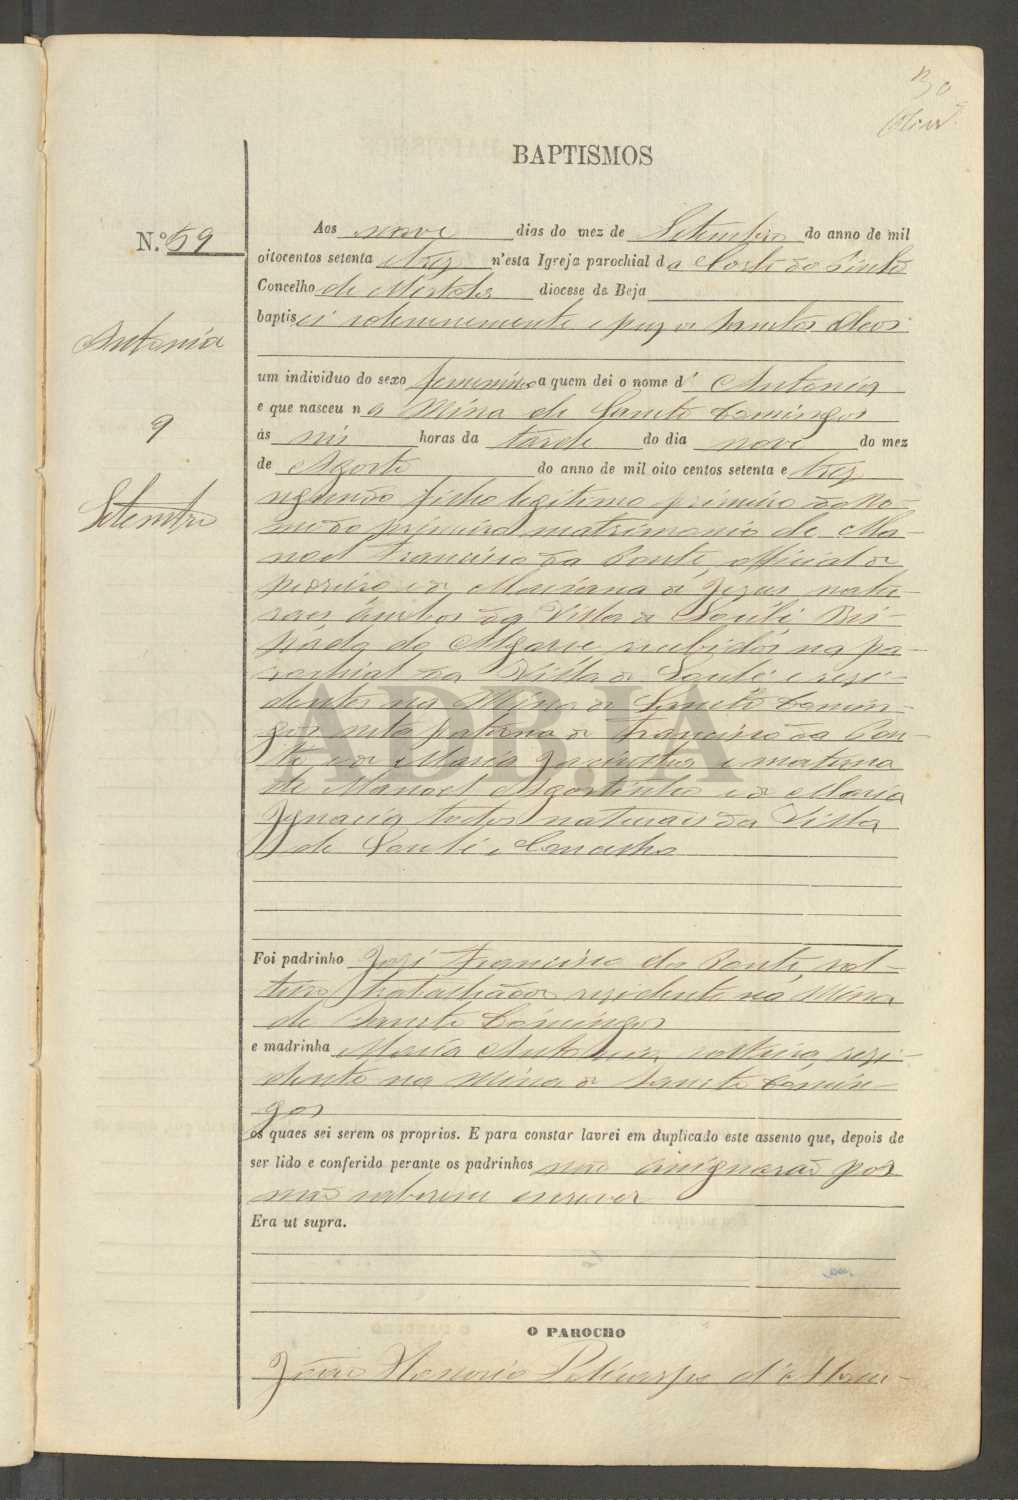 30
BAPTISMOS
N.º 59
Antonia
9
Setembro
Aos nove dias do mez de Setembro do anno de mil
oitocentos setenta e trez n'esta Igreja parochial da Corte do Pinto
Concelho de Mertola diocese de Beja
baptisei solemnemente e puz os Sanctos Oleos
um individuo do sexo femenino a quem dei o nome d' Antonia
e que nasceu na Mina de Sancto Domingos
ás seis horas da tarde do dia nove do mez
de Agosto do anno de mil oito centos setenta e trez
segundo filho legitimo primeiro do no-
me do primeiro matrimonio de Ma-
noel Francisco da Ponte, official de
pedreiro e de Mariana de Jezus natu-
raes ambos da Villa de Loulé Bis-
pado do Algarve recebidos na pa-
rochial da Villa de Loulé e rezi-
dentes na Mina de Sancto Domin-
gos neta paterna de Francisco da Pon-
te e de Maria Jacintha e materna
de Manoel Agostinho e de Maria
Ignacia todos naturaes da Villa
de Loulé e Concelho
Foi padrinho José Francisco da Ponte, sol-
teiro, trabalhador rezidente na Mina
de Sancto Domingos
e madrinha Maria Antonia, solteira, rezi-
dente na Mina de Sancto Domin-
gos
os quaes sei serem os proprios. E para constar lavrei em duplicado este assento que, depois de
ser lido e conferido perante os padrinhos não assignarão por
não saberem escrever
Era ut supra.
O PAROCHO
João Honorio Policarpo d'
ADBJA